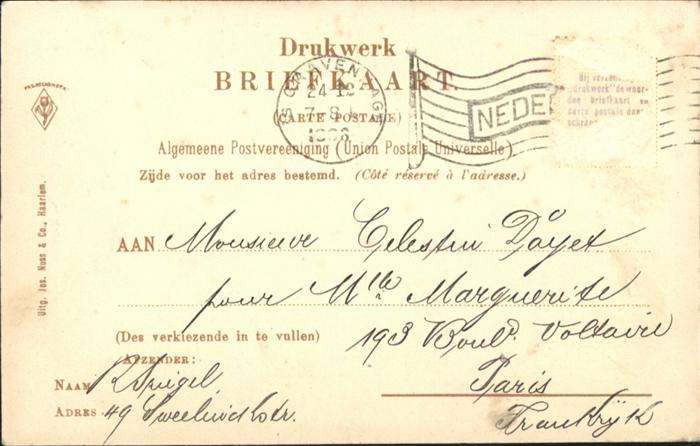 Drukwerk
BRIEFKAART.
(CARTE POSTALE)
Algemeene Postvereeniging (Union Postale Universelle)
Zijde voor het adres bestemd. (Côté réservé à l'adresse.)
'S GRAVENHAGE
24 12
7-8
NEDER
Bij verzen
"drukwerk" de woor-
den briefkaart en
carte postale
Uitg. Jos. Nuss & Co., Haarlem.
AAN Monsieur Celestin Dayet
pour Mlle Marguerite
(Des verkiezende in te vullen) 193 Bould. Voltaire
AFZENDER:
NAAM R Spigel Paris
ADRES 49 Sweelinckstr. Frankrijk